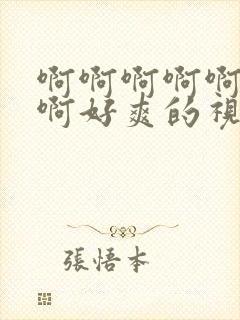 啊啊啊啊啊
啊好爽的視
張悟本